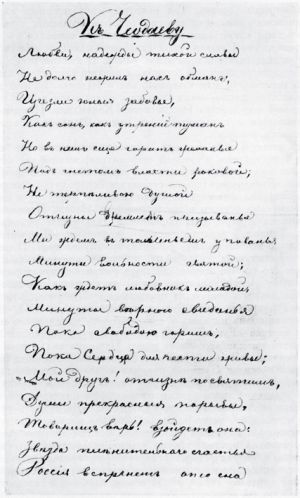 Къ Чедаеву
Любви, надежды тихой славы
Не долго нежилъ насъ обманъ;
Изчезли юныя забавы,
Какъ сонъ, какъ утренній туманъ
Но въ насъ еще горятъ желанья
Подъ гнетомъ власти роковой;
Не терпѣливою душой
Отчизны внемлемъ призыванье
Мы ждемъ въ томленьемъ упованья
Минуты вольности святой;
Какъ ждетъ любовникъ молодой
Минуты вѣрнаго свиданья
Пока свободою горимъ,
Пока Сердца для чести живы;
Мой другъ! отчизнѣ посвятимъ,
Души прекрасныя порывы,
Товарищъ вѣрь! взойдетъ она:
Звѣзда плѣнительнаго счастья
Россія вспрянетъ ото сна